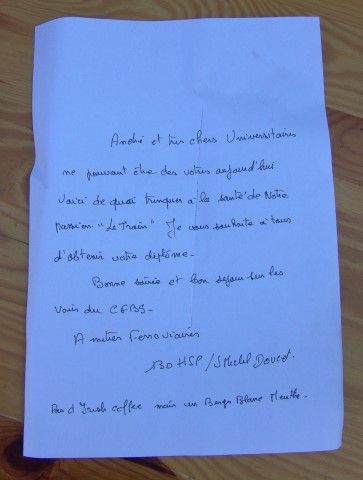 André et très chers Universitaires
ne pouvant être des votres aujourd'hui
Voici de quoi trinquer à la santé de Notre
passion "Le Train" Je vous souhaite à tous
d'obtenir votre diplôme.
Bonne soirée et bon séjour sur les
Voies du CFBS.
Amitiés Ferroviaires
BDHSP / JMichel
Pas d'Irish coffee mais un Berger Blanc Menthe.